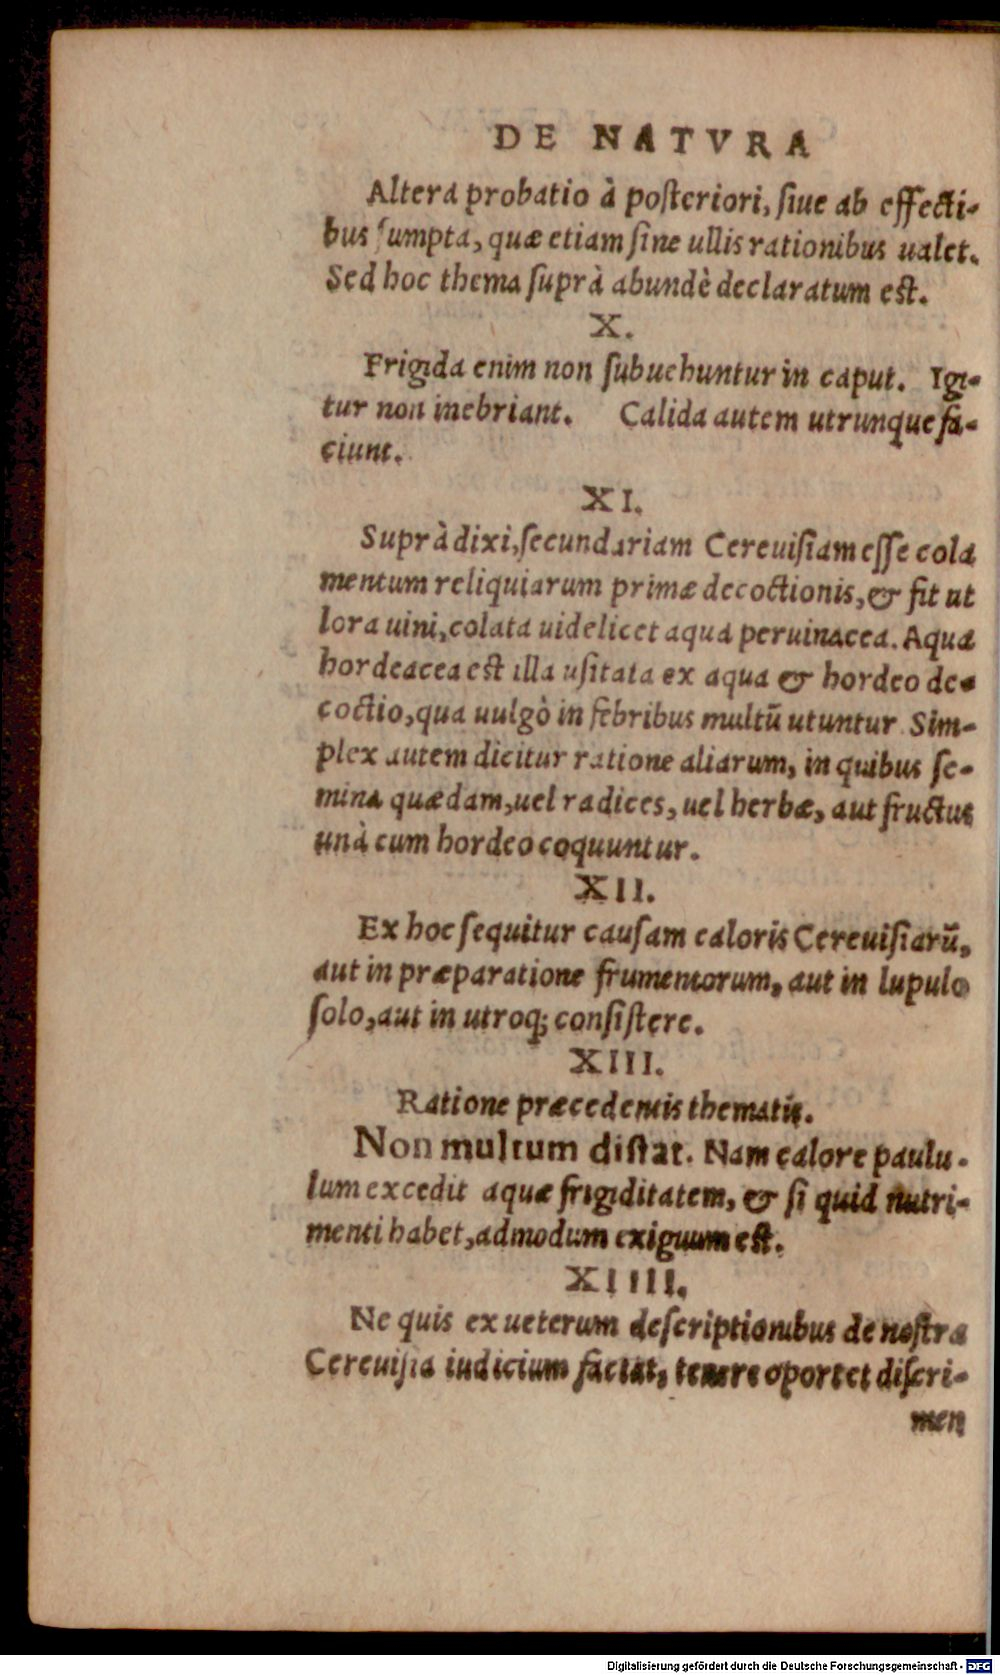 DE NATVRA
Altera probatio à posteriori, siue ab effecti-
bus sumpta, quæ etiam sine ullis rationibus ualet.
Sed hoc thema suprà abundè declaratum est.
X.
Frigida enim non subuehuntur in caput. Igi-
tur non inebriant. Calida autem utrunque fa-
ciunt.
XI.
Suprà dixi, secundariam Cereuisiam esse cola
mentum reliquiarum primæ decoctionis, & fit ut
lora uini, colata uidelicet aqua per uinacea. Aqua
hordeacea est illa usitata ex aqua & hordeo de-
coctio, qua uulgò in febribus multũ utuntur. Sim-
plex autem dicitur ratione aliarum, in quibus se-
mina quædam, uel radices, uel herbæ, aut fructus
unà cum hordeo coquuntur.
XII.
Ex hoc sequitur causam caloris Cereuisiarũ,
aut in præparatione frumentorum, aut in lupulo
solo, aut in utroq; consistere.
XIII.
Ratione præcedentis thematis.
Non multum distat. Nam calore paulu-
lum excedit aquæ frigiditatem, & si quid nutri-
menti habet, admodum exiguum est.
XIIII.
Ne quis ex ueterum descriptionibus de nostra
Cereuisia iudicium faciat, tenere oportet discri-
men
Digitalisierung gefördert durch die Deutsche Forschungsgemeinschaft - DFG